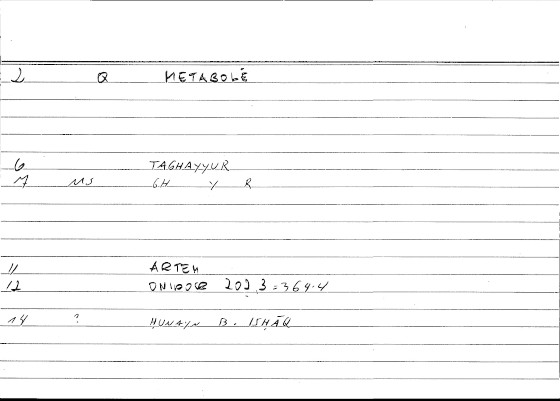 2 Q METABOLÉ
6 TAGHAYYUR
7 MS GH Y R
11 ARTEM
12 ONIROCR 202,3 = 364.4
14 ? ḤUNAYN B. ISḤĀQ